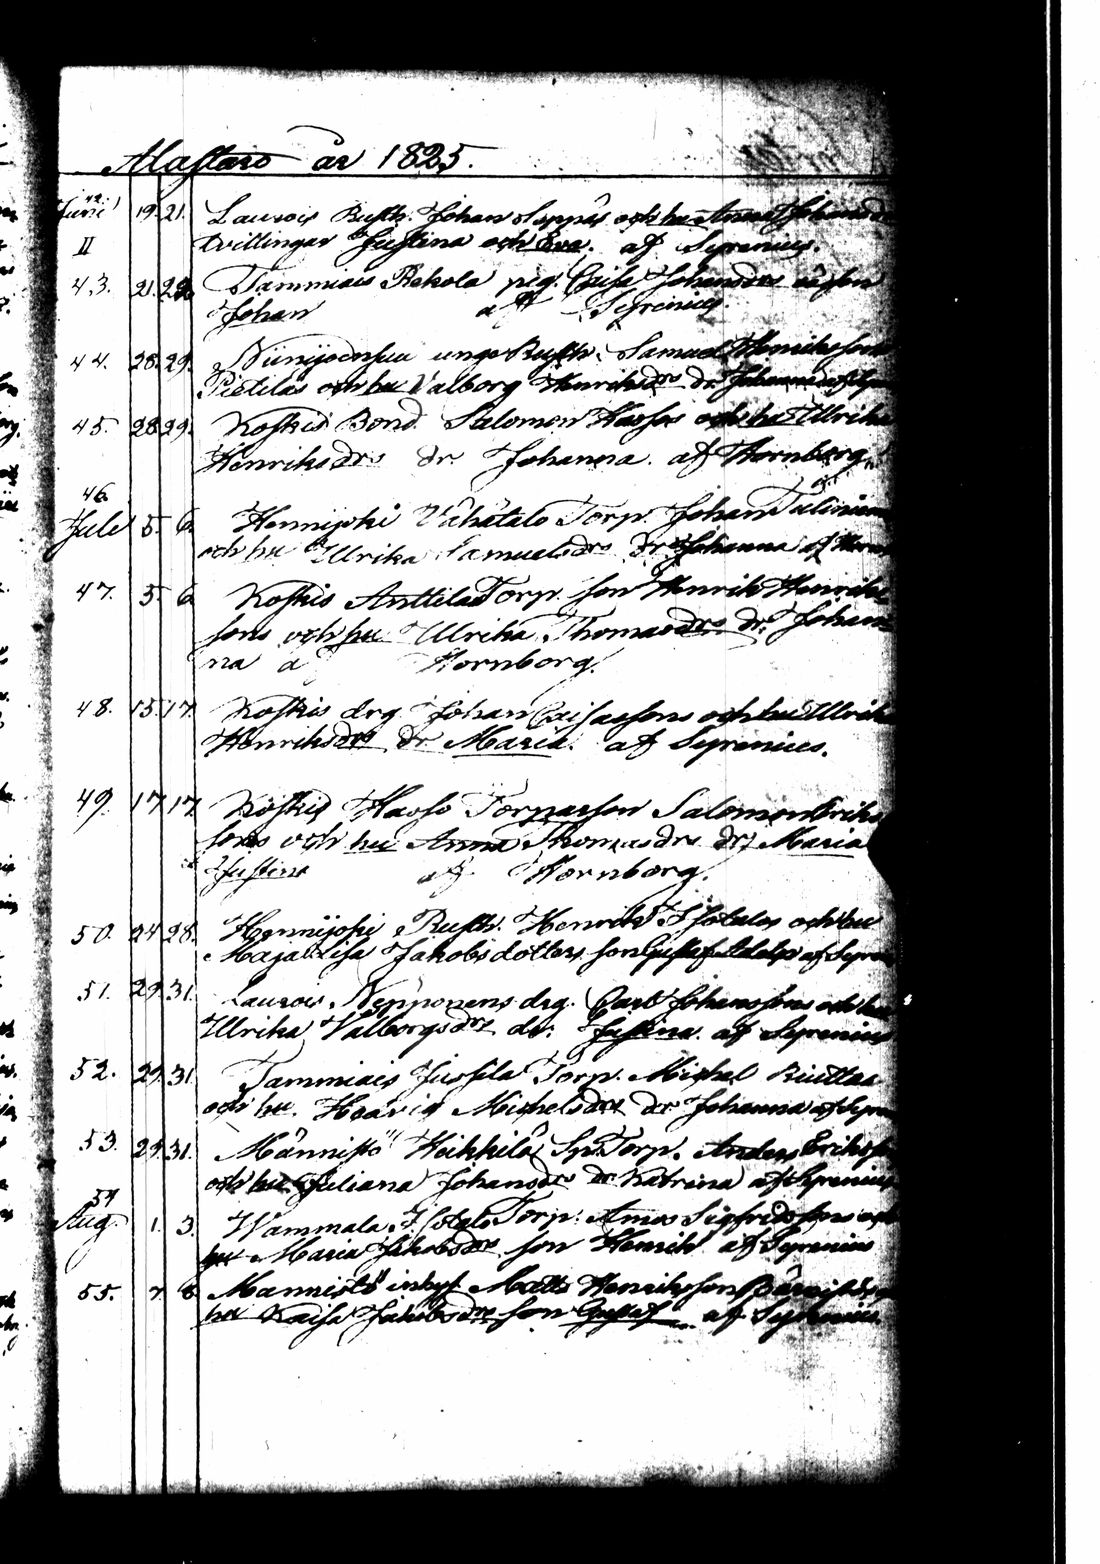 Alastaro år 1825.
42. Juni 19. 21. Laurois Rusth. Johan Seppäs och hu Anna Johansdrs
II tvillingar Justina och Eva. af Syrenius.
43. 21. 22. Tammiais Rekola pig. Caisa Johansdrs oägta
Johan af Syrenius.
44. 28. 29. Niinijoensuu unge Rusth. Samuel Henrikssons
Pietiläs och hu Valborg Henriksdrs dr Johanna af
45. 28 29. Koskis Bond. Salomon Hassos och hu Ulrika
Henriksdrs dr. Johanna. af Hornborg.
46.
Juli 5. 6. Hennijoki Vähätalo Torp. Johan
och hu Ulrika Samuelsdrs dr Johanna af
47. 5. 6 Koskis Anttilas Torp. son Henrik Henriks
sons och hu Ulrika Thomasdrs dr. Johan
na a Hornborg.
48. 15. 17. Koskis drg Johan Caisassons och hu Ulrika
Henriksdrs dr Maria. af Syrenius.
49. 17 17. Koskis Hasso Torparson Salomon Eriks
sons och hu Anna Thomasdrs dr Maria
Justina af Hornborg.
50. 24 28. Hennijoki Rusth. Henrik Isotalos och hu
Maja Lisa Jakobsdotters son Gustaf Adolf af
51. 29. 31. Laurois Nepponens drg. Carl Johanssons och hu
Ulrika Valborgsdrs dr. Justina. af Syrenius
52. 29. 31. Tammiais Jussila Torp. Michel
och hu. Hedvig Michelsdrs dr Johanna af
53. 29. 31. Männistö Heikkilä Sp. Torp. Anders Eriks
och hu Juliana Johansdrs dr Katrina af Syrenius
54
Aug. 1. 3. Wammala Isotalo Torp. Amos Sigfridssons och
hu Maria Jakobsdrs son Henrik af Syrenius
55. 7. 8. Mannistö inhys Matts Henriksson
hu Kaisa Jakobsdrs son Gustaf af Syrenius.